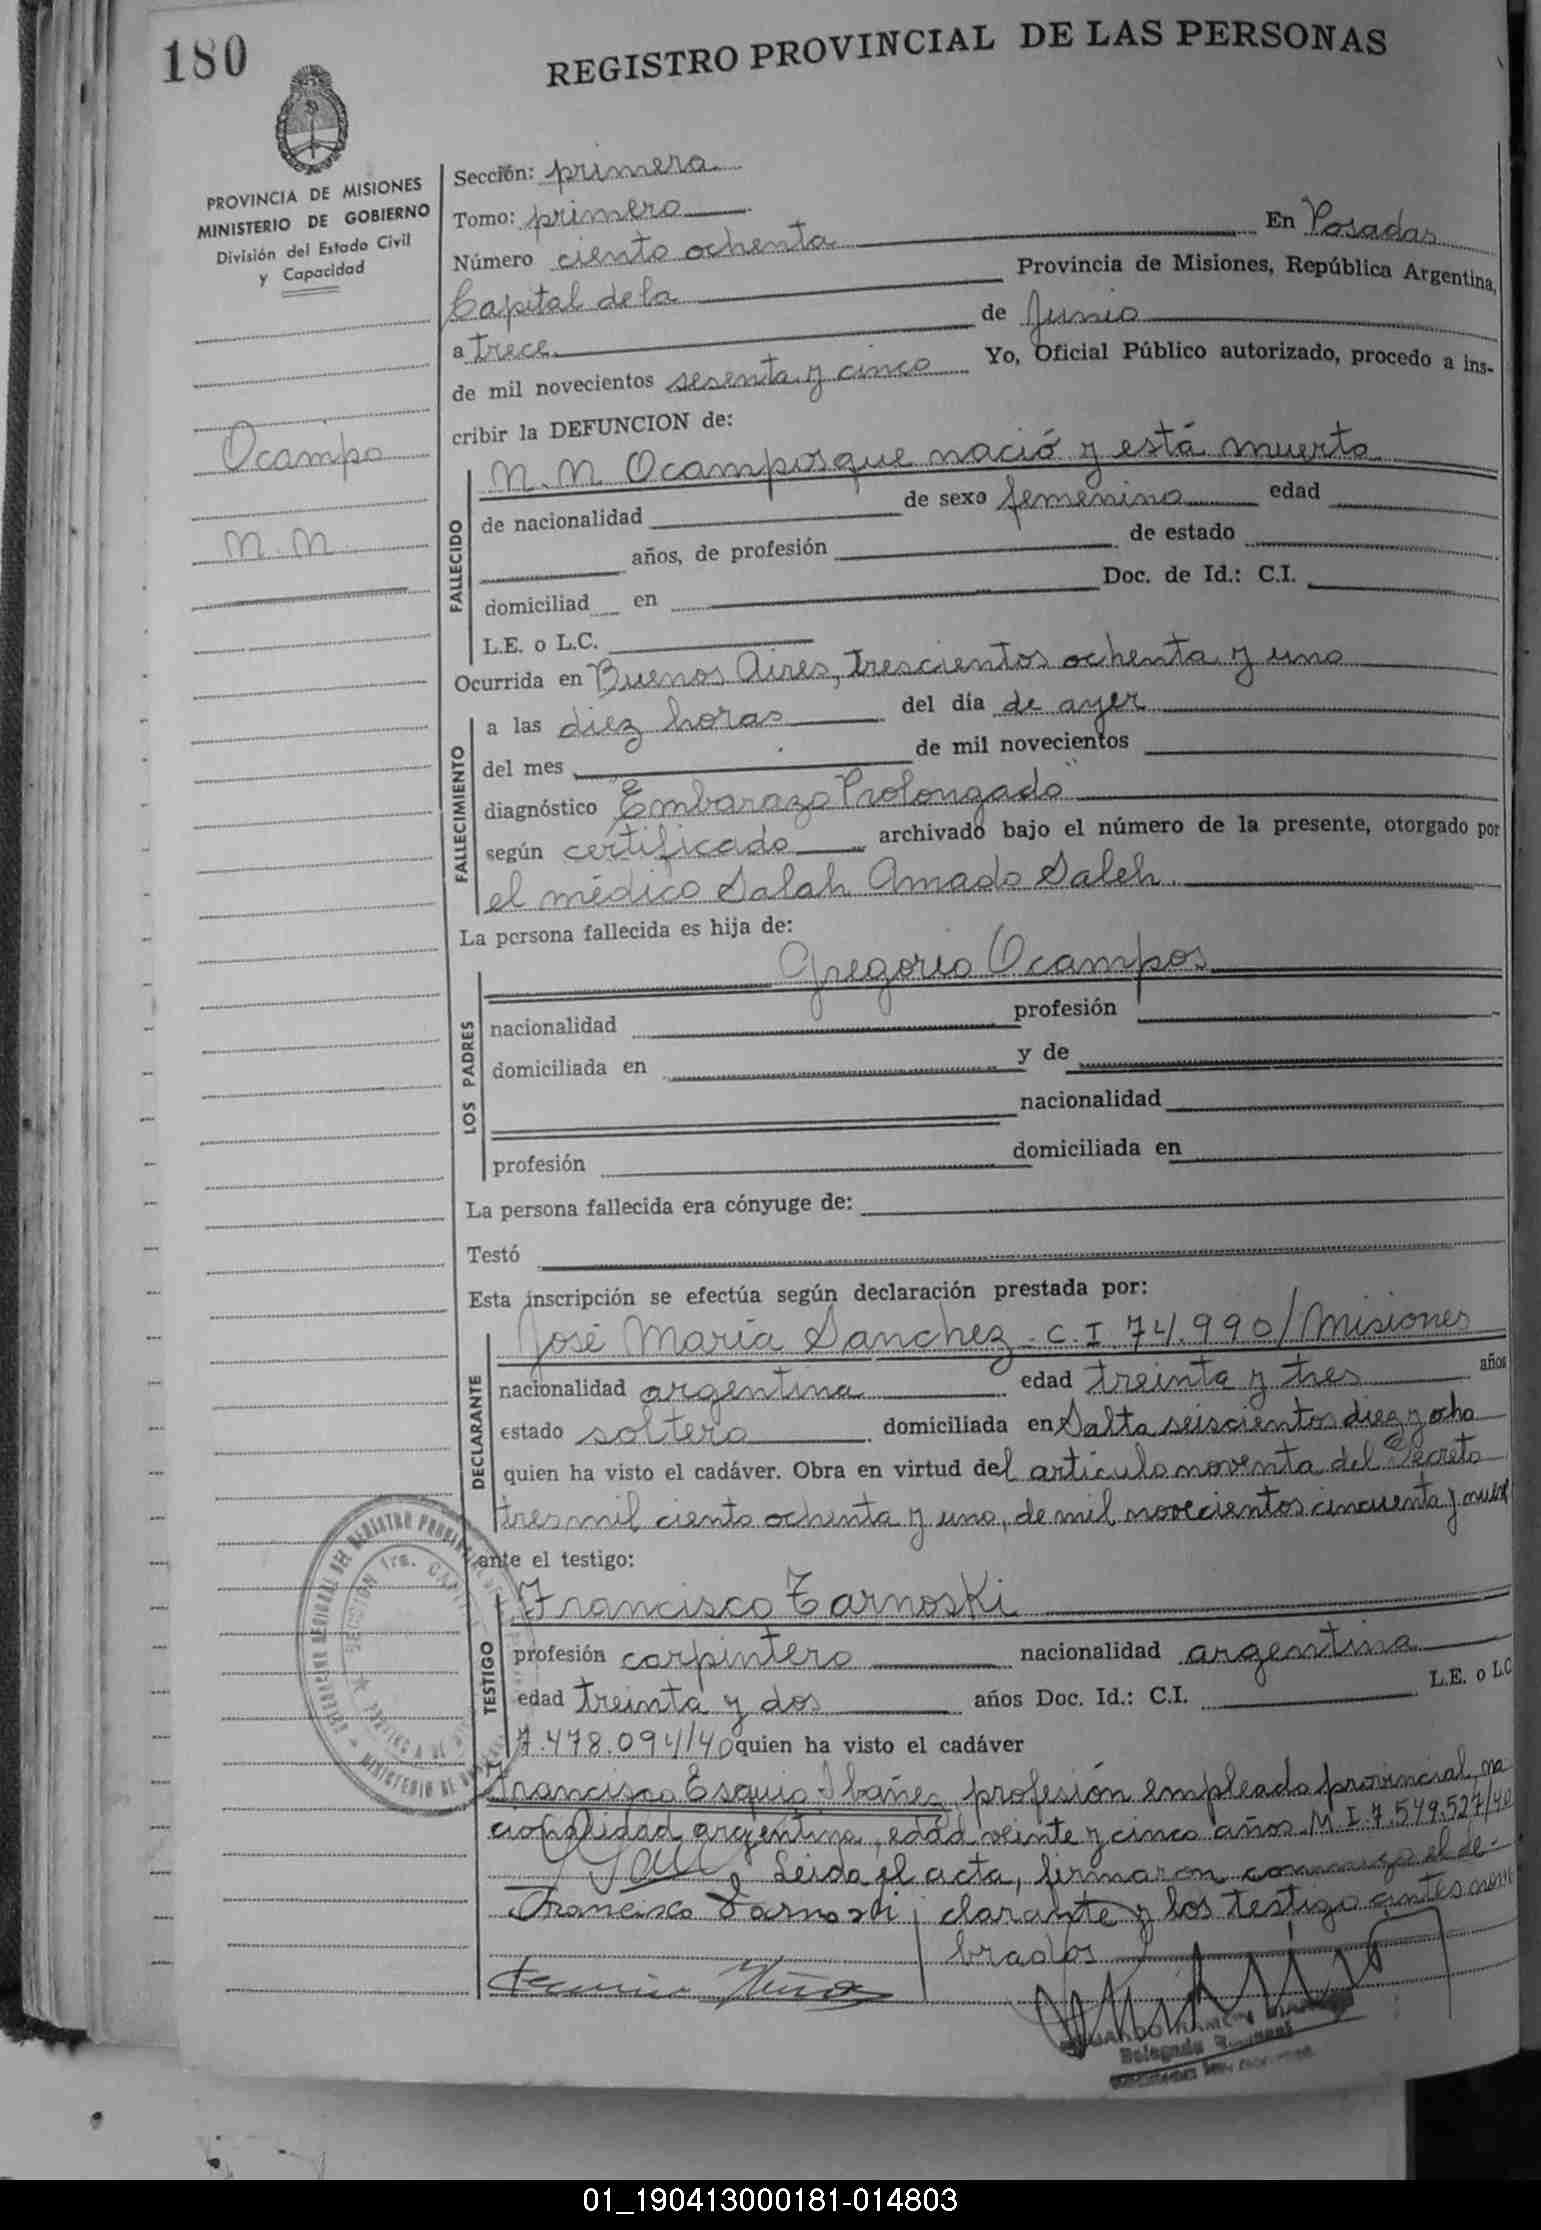 180
REGISTRO PROVINCIAL DE LAS PERSONAS
PROVINCIA DE MISIONES
MINISTERIO DE GOBIERNO
División del Estado Civil
y Capacidad
Ocampo
N. N.
Sección: primera
Tomo: primero
Número ciento ochenta En Posadas
Capital de la Provincia de Misiones, República Argentina,
a trece de Junio
de mil novecientos sesenta y cinco Yo, Oficial Público autorizado, procedo a ins-
cribir la DEFUNCION de:
FALLECIDO
N. N. Ocampos que nació y está muerta
de nacionalidad de sexo femenino edad
años, de profesión de estado
domiciliad en Doc. de Id.: C.I.
L.E. o L.C.
Ocurrida en Buenos Aires, trescientos ochenta y uno
FALLECIMIENTO
a las diez horas del día de ayer
del mes de mil novecientos
diagnóstico "Embarazo Prolongado"
según certificado archivado bajo el número de la presente, otorgado por
el médico Salah Amado Saleh.
La persona fallecida es hija de:
LOS PADRES
Gregorio Ocampos
nacionalidad profesión
domiciliada en y de
nacionalidad
profesión domiciliada en
La persona fallecida era cónyuge de:
Testó
Esta inscripción se efectúa según declaración prestada por:
DECLARANTE
José María Sanchez - C.I. 74.990/Misiones
nacionalidad argentina edad treinta y tres años
estado soltero domiciliada en Salta seiscientos diez y ocho
quien ha visto el cadáver. Obra en virtud del artículo noventa del Decreto
tres mil ciento ochenta y uno, de mil novecientos cincuenta y nueve
ante el testigo:
TESTIGO
Francisco Tarnoski
profesión carpintero nacionalidad argentina
edad treinta y dos años Doc. Id.: C.I. L.E. o LC
7.478.094/40 quien ha visto el cadáver
Francisco Esquio Ibañez, profesión empleado provincial, na
cionalidad argentina, edad veinte y cinco años M.I. 7.549.527/40
Leida el acta, firmaron conmigo el de-
Francisco Tarnoski clarante y los testigo antes nom
brados
SECCION 1ra.
Delegado
01_190413000181-014803